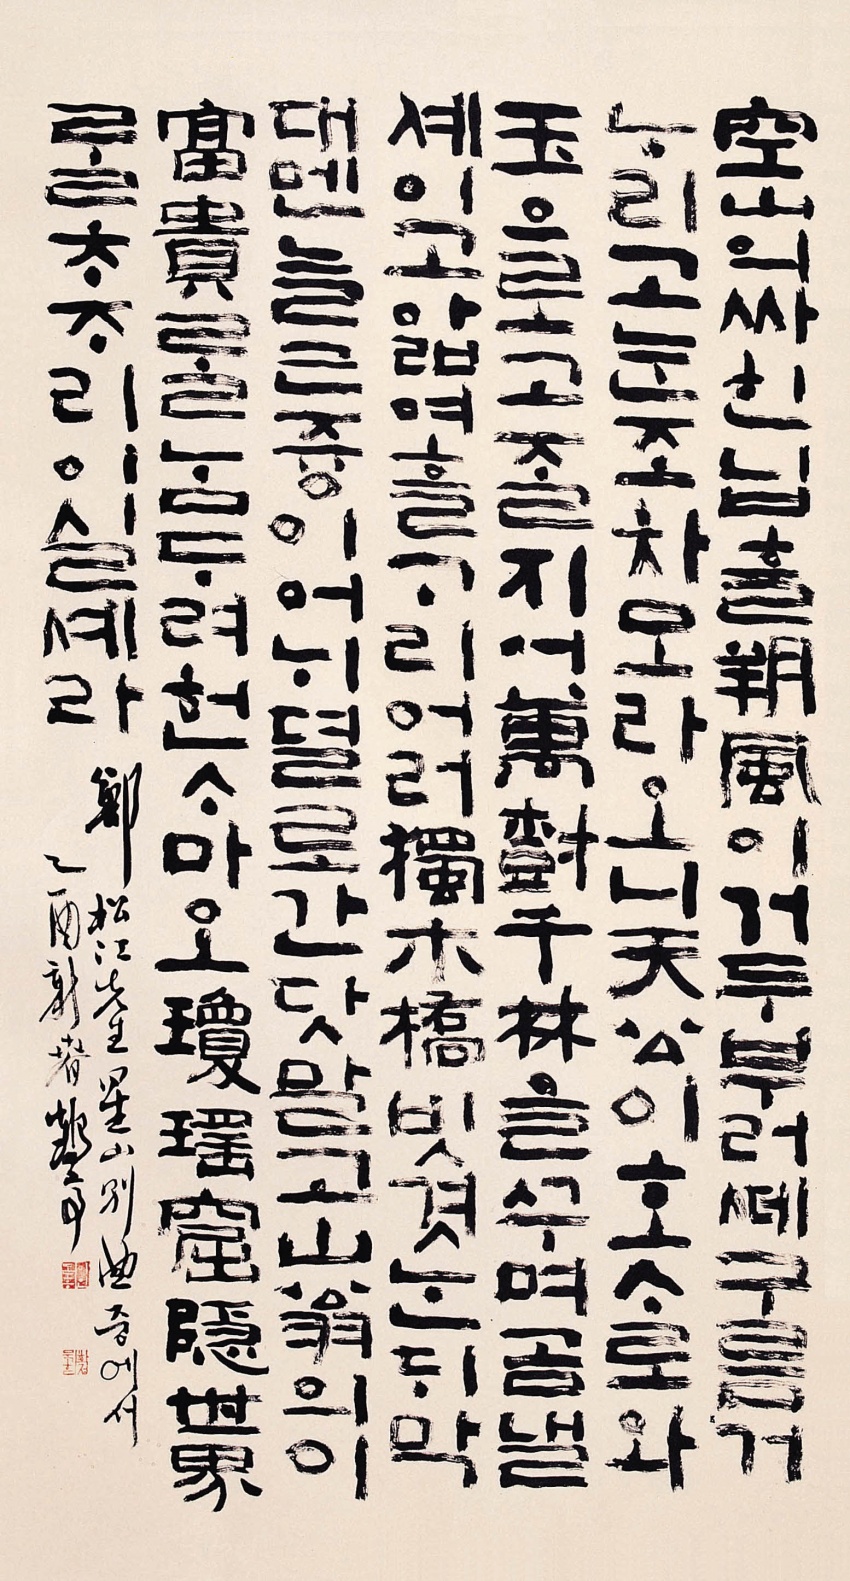 空山의싸힌닙흘朔風이거두부러ᄯᅦ구름거
ᄂᆞ리고눈조차모라오니天公이호ᄉᆞ로와
玉으로고즐지어萬樹千林을ᄭᅮ며곰낼
셰이고앏여흘ᄀᆞ리어러獨木橋빗겻ᄂᆞᆫᄃᆡ막
대멘늘근즁이어ᄂᆡ뎔로간닷말고山翁의이
富貴ᄅᆞᆯᄂᆞᆷᄃᆞ려헌ᄉᆞ마오瓊瑤窟隱世界
ᄅᆞᆯᄎᆞᄌᆞ리이실셰라
鄭松江先生星山別曲중에서
乙酉新春鶴亭